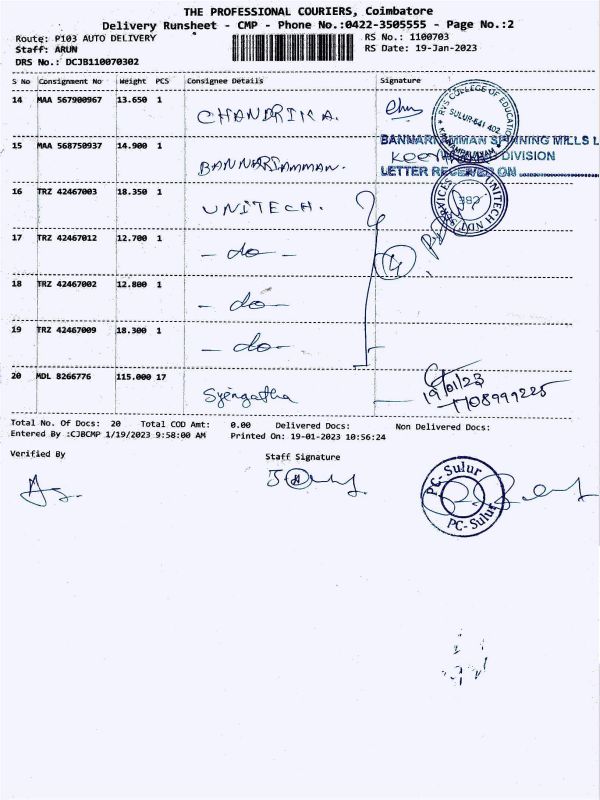 THE PROFESSIONAL COURIERS, Coimbatore
Delivery Runsheet - CMP - Phone No.:0422-3505555 - Page No.:2
Route: P103 AUTO DELIVERY RS No.: 1100703
Staff: ARUN RS Date: 19-Jan-2023
DRS No.: DCJB110070302
S No Consignment No Weight PCS Consignee Details Signature
14 MAA 567900967 13.650 1 CHANDRIKA.
RVS COLLEGE OF EDUCATION
SULUR-641 402
KANNAMPALAYAM
15 MAA 568750937 14.900 1 BANNARIAMMAN.
BANNARI AMMAN SPINNING MILLS L
DIVISION
LETTER RECEIVED ON
16 TRZ 42467003 18.350 1 UNITECH.
UNITECH NDT SERVICES
17 TRZ 42467012 12.700 1 - do - 4
18 TRZ 42467002 12.800 1 - do -
19 TRZ 42467009 18.300 1 - do -
20 MDL 8266776 115.000 17
19/01/23
7708999225
Total No. Of Docs: 20 Total COD Amt: 0.00 Delivered Docs: Non Delivered Docs:
Entered By :CJBCMP 1/19/2023 9:58:00 AM Printed On: 19-01-2023 10:56:24
Verified By Staff Signature
PC- Sulur
PC- Sulur